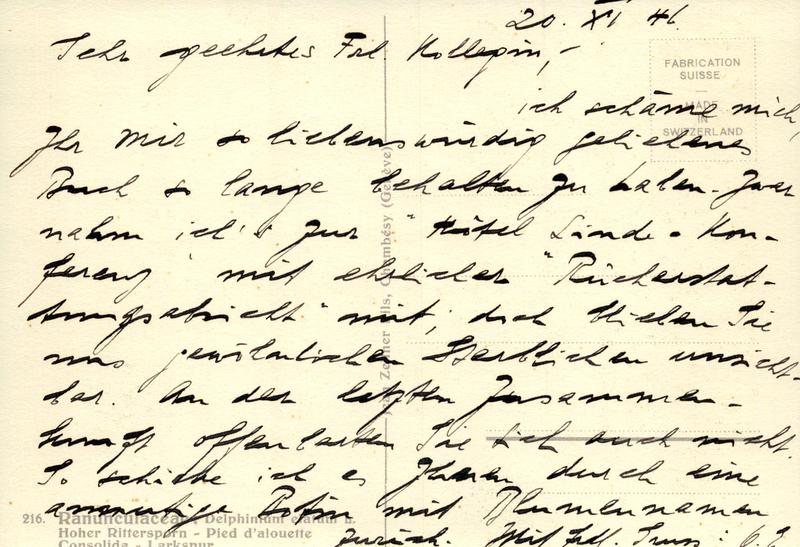 20. XI 46.
Sehr geehrtes Frl. Kollegin, -
FABRICATION
SUISSE
MADE
IN
SWITZERLAND
ich schäme mich,
Ihr mir so liebenswürdig geliehenes
Buch so lange behalten zu haben. Zwar
nahm ich's zur "Hôtel Linde-Kon-
ferenz" mit ehrlicher "Rückerstat-
tungsabsicht" mit, doch blieben Sie
uns gewöhnlichen Sterblichen unsicht-
bar. An der letzten Zusammen-
kunft offenbarten Sie sich auch nicht.
So schicke ich es Ihnen durch eine
anmutige Botin mit Blumennamen
zurück. Mit frdl. Gruss:
Zellner Fils, Chambésy (Genève)
216. Ranunculaceae: Delphinium elatum L.
Hoher Rittersporn - Pied d'alouette
Consolida - Larkspur